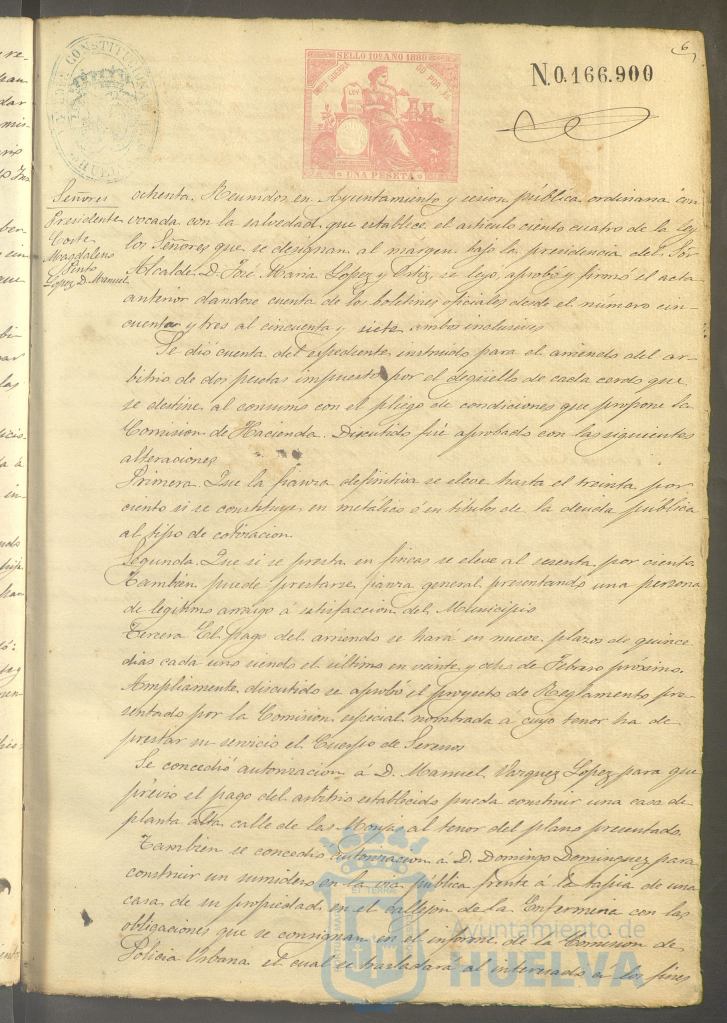 6
SELLO 10º AÑO 1880
UNA PESETA
LEY
N.0.166.900
Señores
Presidente
Corte
Magdaleno
Pinto
Lopez D. Manuel
ochenta. Reunidos en Ayuntamiento y sesion pública ordinaria con-
vocada con la salvedad que establece el articulo ciento cuatro de la ley
los Señores que se designan al margen bajo la presidencia del Sor
Alcalde D. José Maria Lopez y Ortiz se leyo, aprobó y firmó el acta
anterior dandose cuenta de los boletines oficiales desde el número cin-
cuenta y tres al cincuenta y siete ambos inclusives
Se dió cuenta del Expediente instruido para el arriendo del ar-
bitrio de dos pesetas impuesto por el degüello de cada cerdo que
se destine al consumo con el pliego de condiciones que propone la
Comision de Hacienda. Discutido fué aprobado con las siguientes
alteraciones
Primera. Que la fianza definitiva se eleve hasta el treinta por
ciento si se constituye en metálico ó en títulos de la deuda pública
al tipo de cotizacion.
Segunda. Que si se presta en fincas se eleve al sesenta por ciento.
Tambien puede prestarse fianza general presentando una persona
de legítimo arraigo á satisfaccion del Municipio
Tercera El pago del arriendo se hará en nueve plazos de quince
dias cada uno siendo el último en veinte y ocho de Febrero próximo.
Ampliamente discutido se aprobó el proyecto de Reglamento pre-
sentado por la Comision especial nombrada á cuyo tenor ha de
prestar su servicio el Cuerpo de Serenos
Se concedió autorizacion á D. Manuel Vazquez Lopez para que
prévio el pago del arbitrio establecido pueda construir una casa de
planta alta calle de las Monjas al tenor del plano presentado.
Tambien se concedio autorizacion á D. Domingo Dominguez para
construir un sumidero en la via pública frente á la tapia de una
casa de su propiedad en el callejon de la Enfermeria con las
obligaciones que se consignan en el informe de la Comision de
Policia Urbana el cual se trasladará al interesado á los fines
Ayuntamiento de
HUELVA